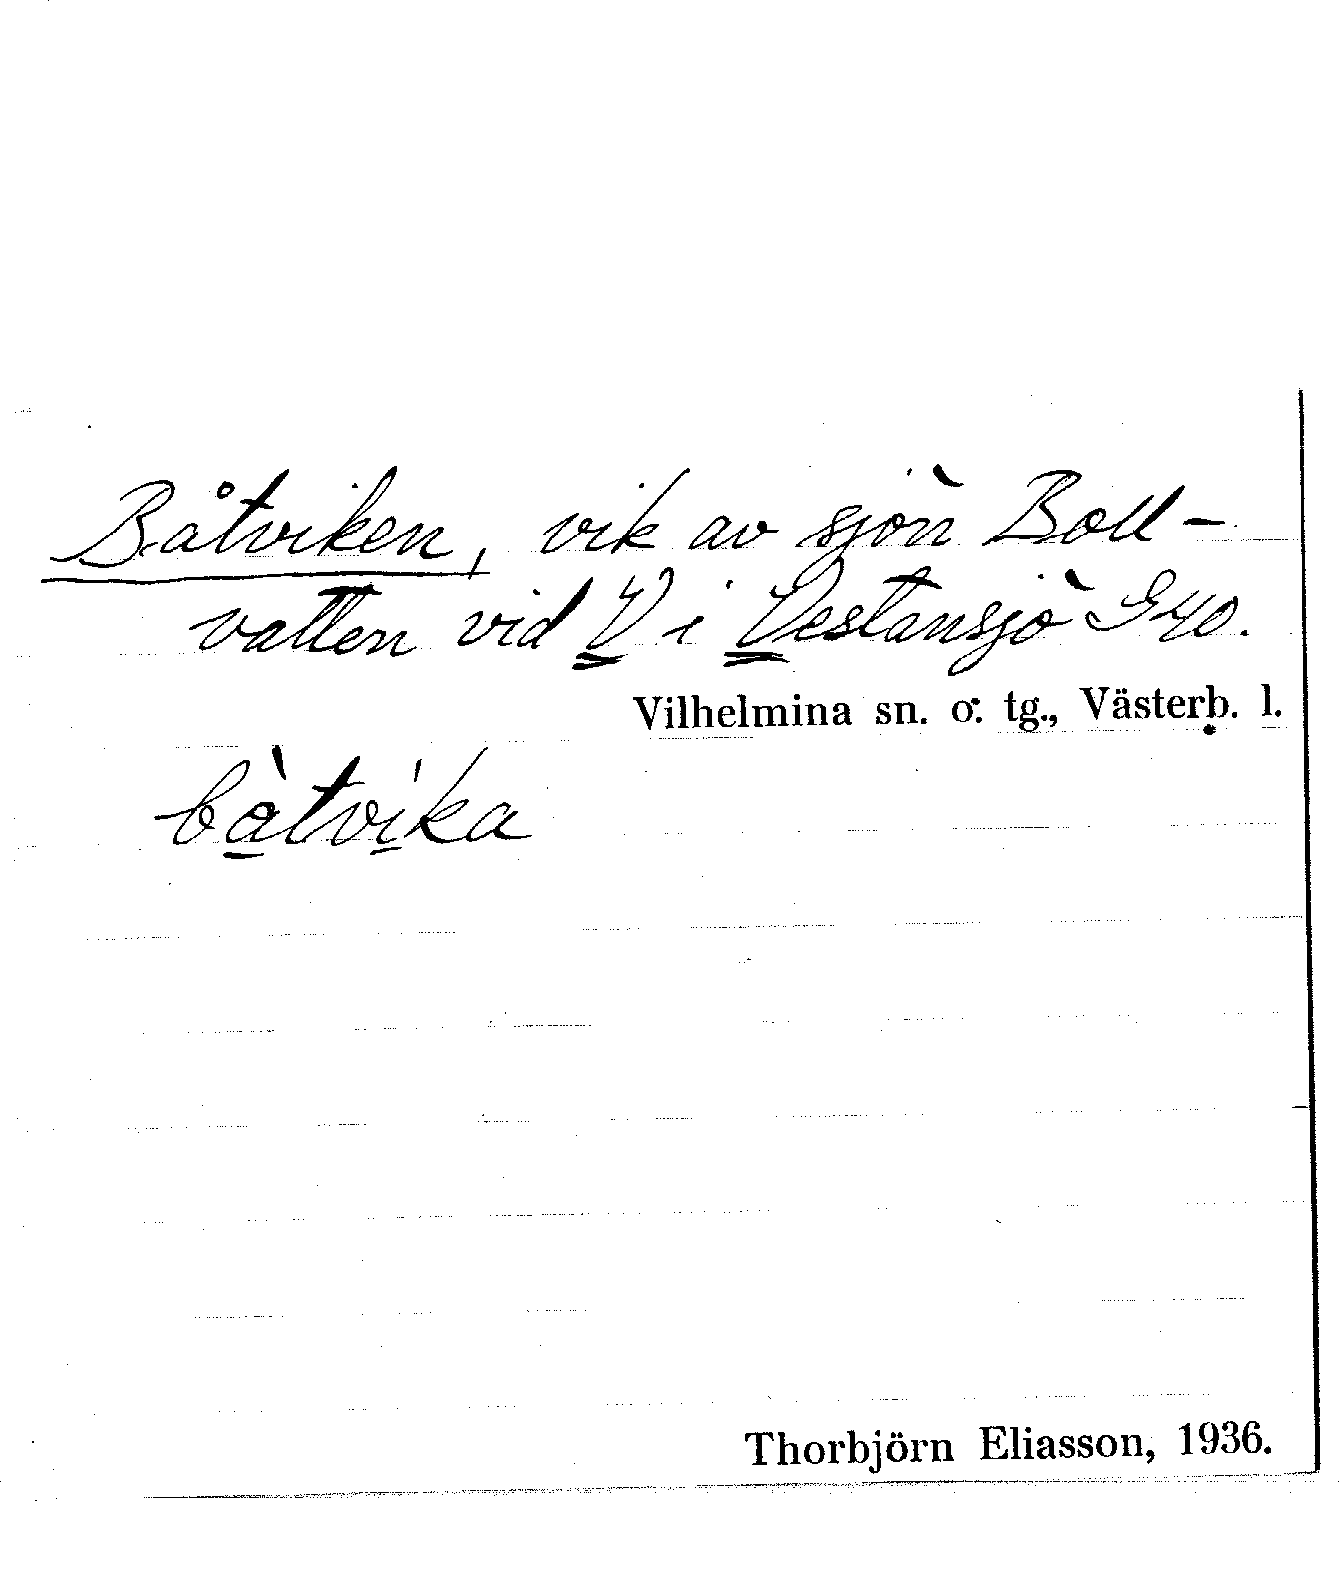 Båtviken, vik av sjön Boll-
vatten vid V i Vestansjö S40.
Vilhelmina sn. o. tg., Västerb. l.
bàtvíka
Thorbjörn Eliasson, 1936.